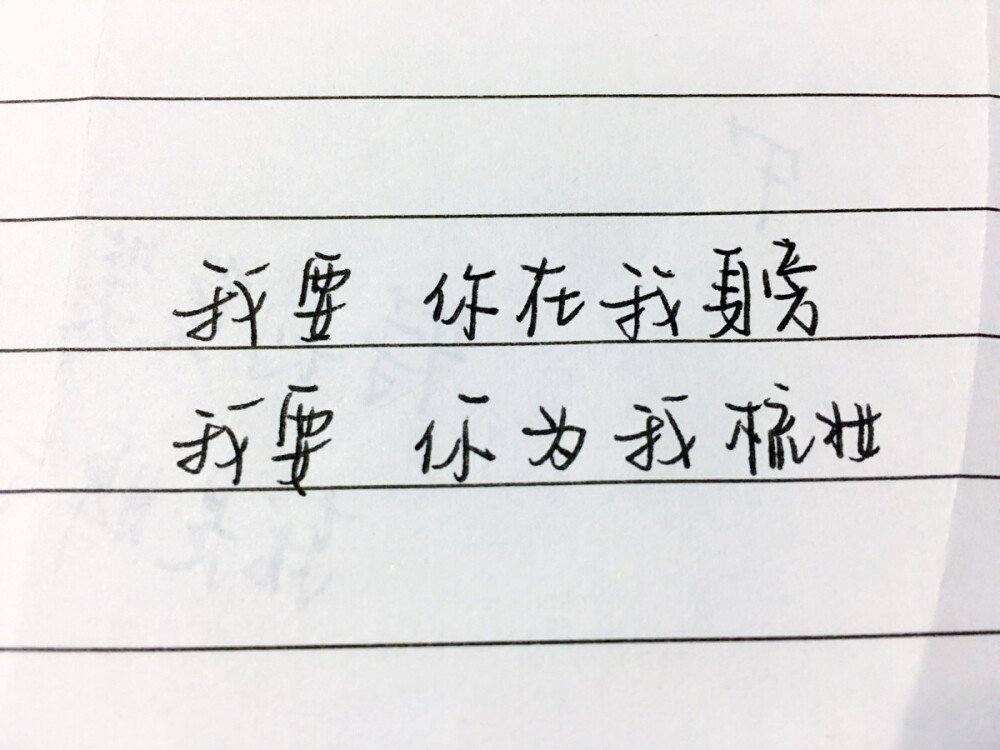 我要 你在我身旁
我要 你为我梳妆